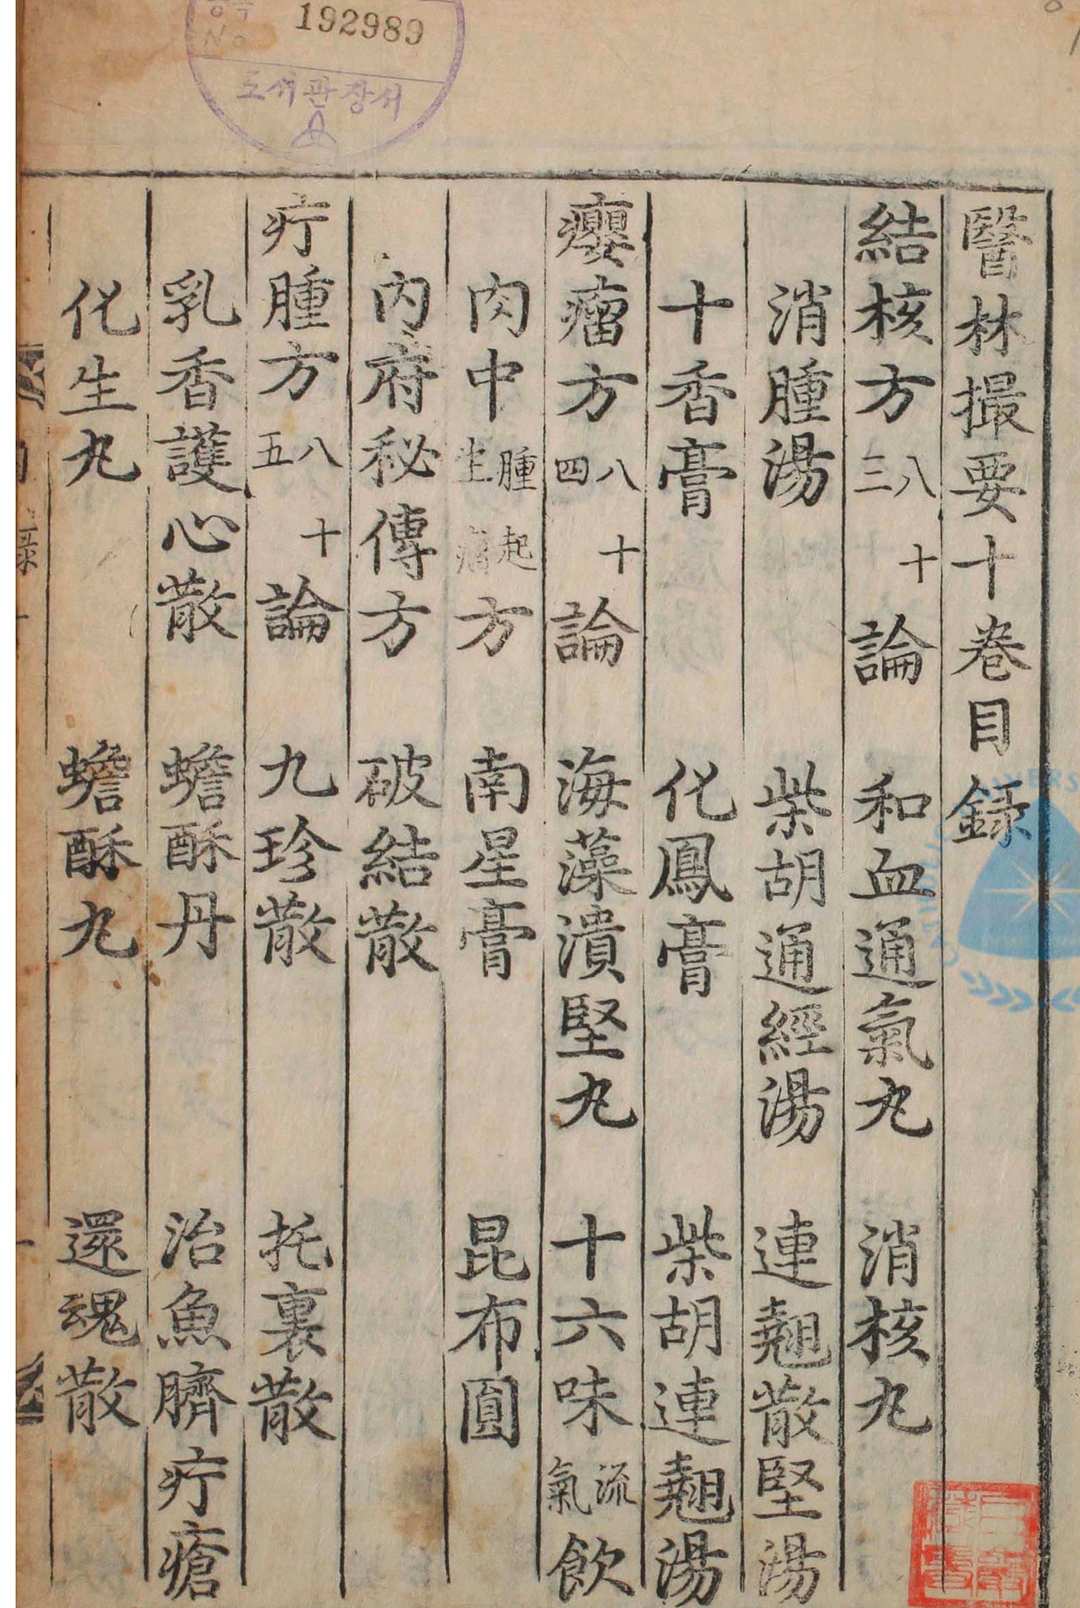 192989
도서관장서
醫林撮要十卷目録
結核方八十三 論 和血通氣丸 消核丸
消腫湯 柴胡通經湯 連翹散堅湯
十香膏 化鳳膏 柴胡連翹湯
癭瘤方八十四 論 海藻潰堅丸 十六味流氣飲
肉中腫起生瘤方 南星膏 昆布圓
內府秘傳方 破結散
疔腫方八十五 論 九珍散 托裏散
乳香護心散 蟾酥丹 治魚臍疔瘡
化生丸 蟾酥丸 還魂散